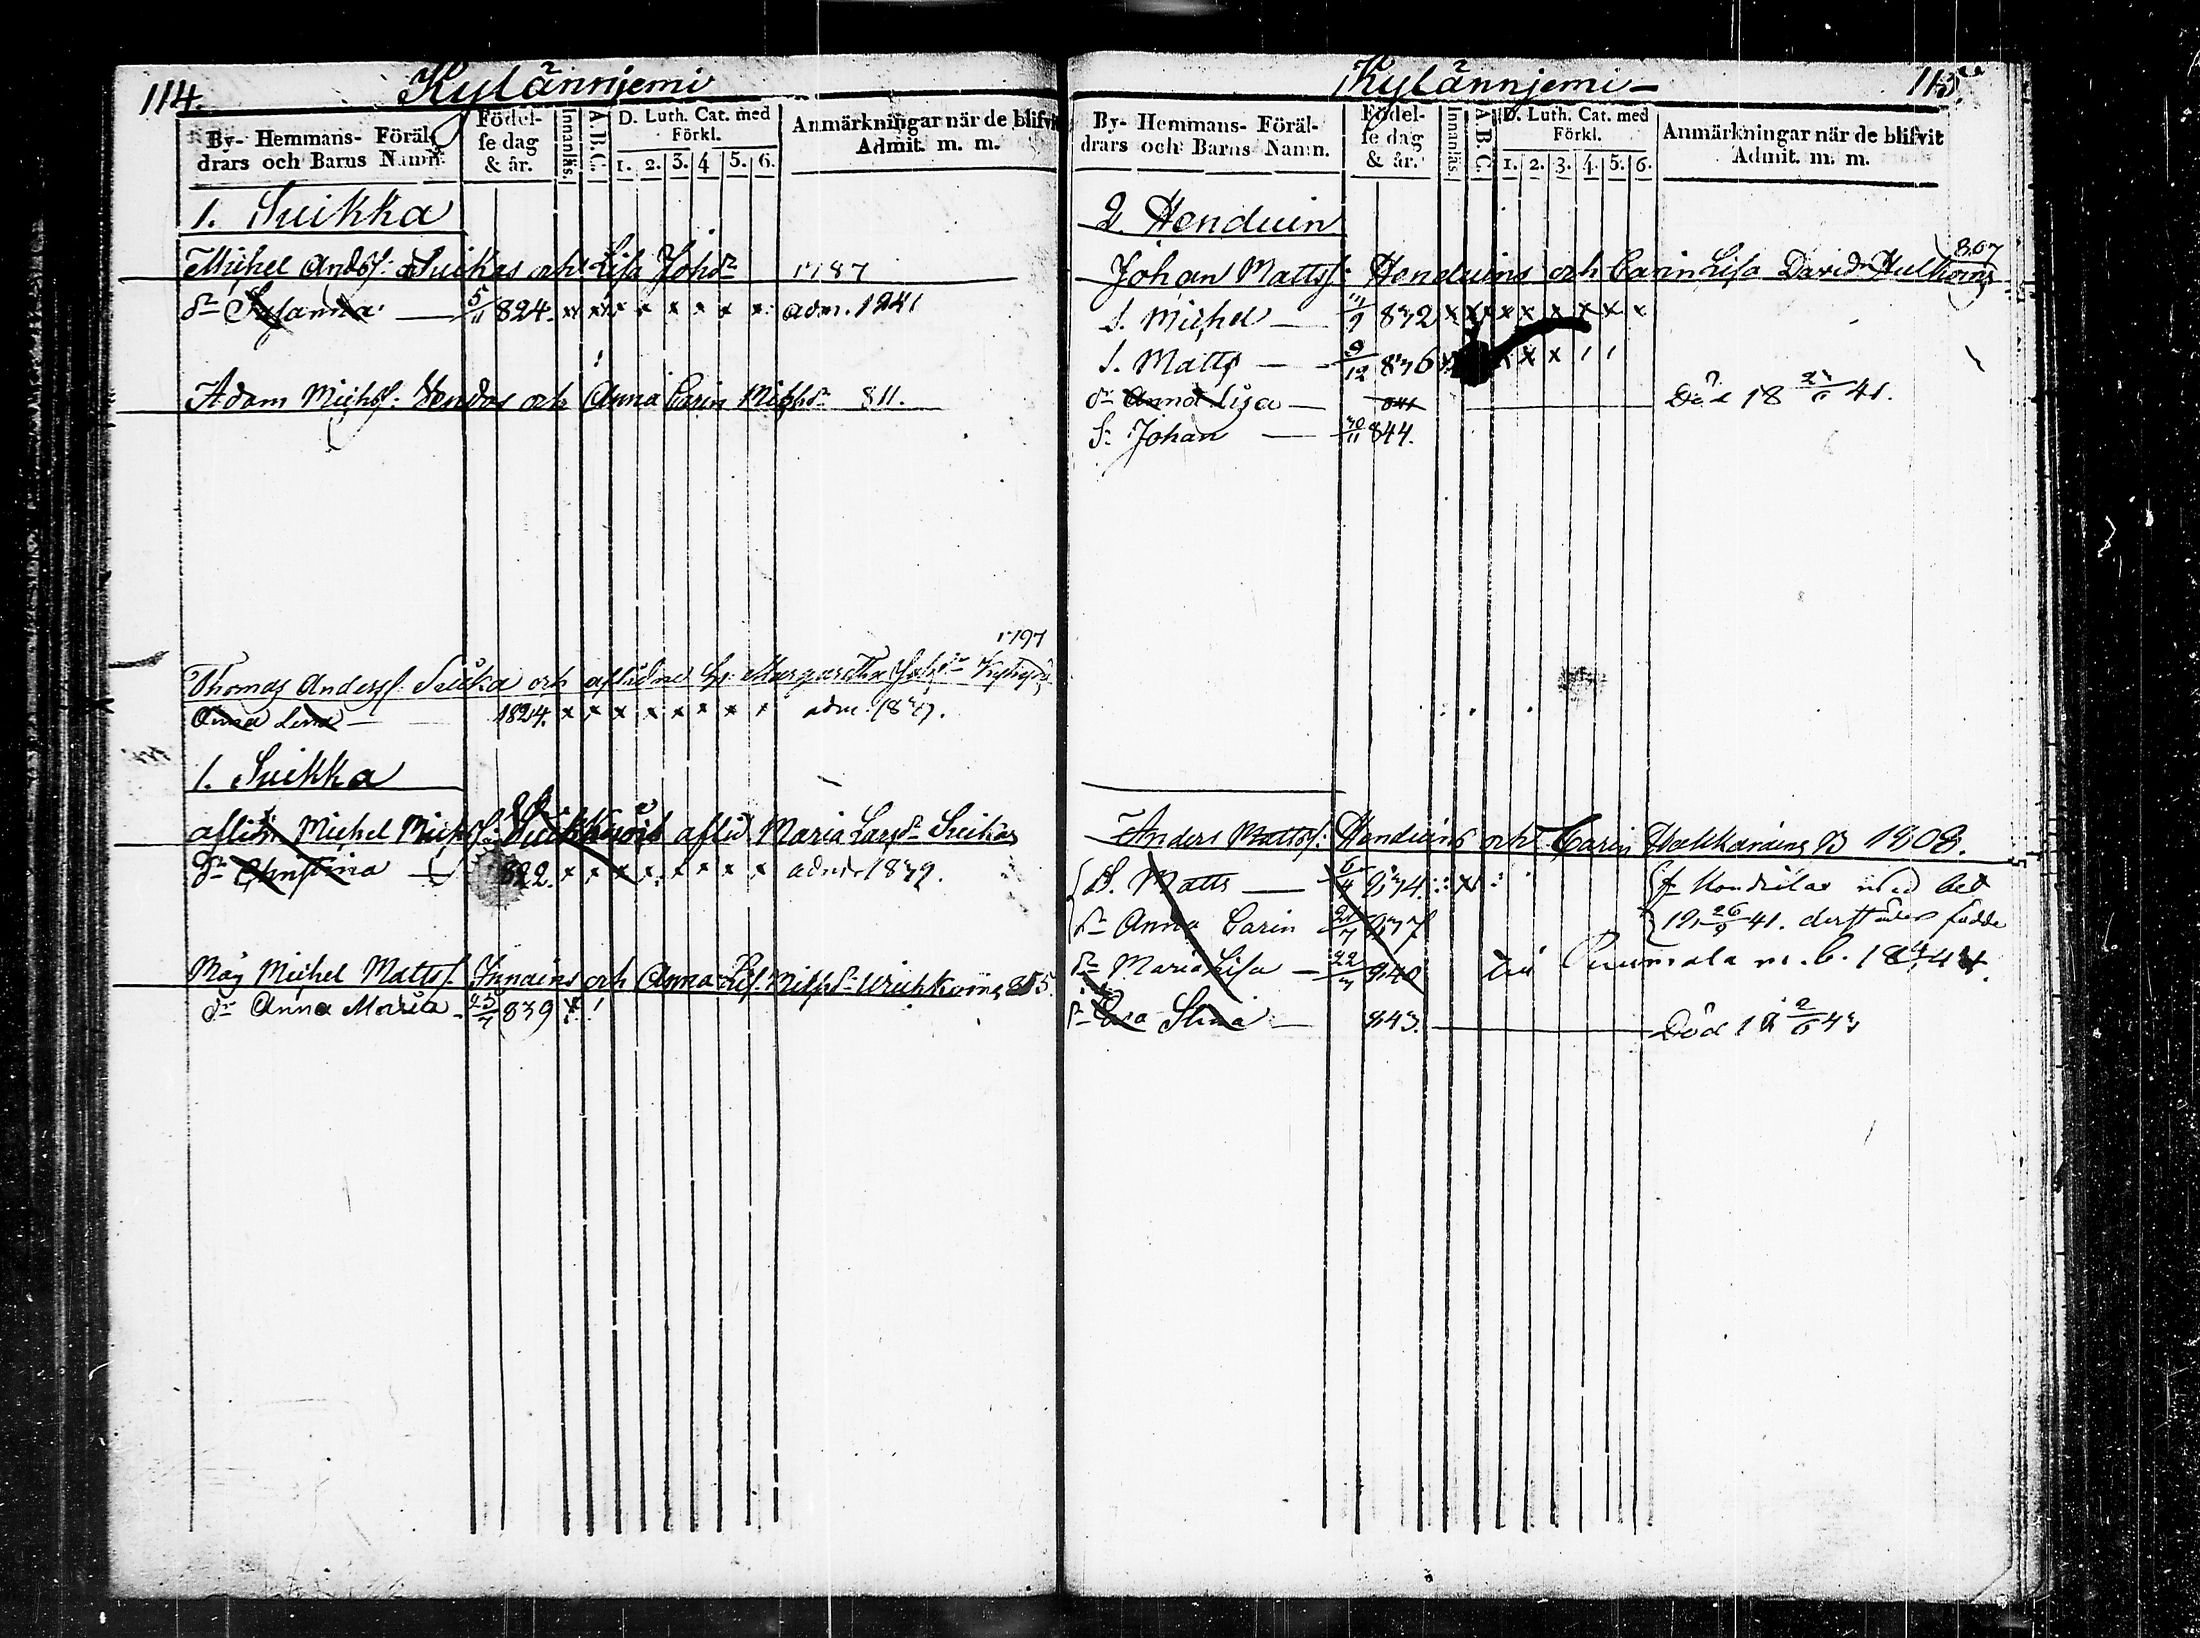 114.
Kylänniemi
By- Hemmans- Föräl-
drars och Barns Namn.
Födel-
se dag
& år.
Innanläs.
A.B.C.
D. Luth. Cat. med
Förkl.
1. 2. 3. 4 5. 6.
Anmärkningar när de blifvit
Admit. m. m.
1. Suikka
Michel Andsf: Suikas och Lisa Johdr 1787
dr Susanna — 5/11 824. x x x x x x x x adm. 1841
Adam Michsf: och Anna Carin Michdr 811.
1797
Thomas Andersf: Suika och aflidne Margaretha
Anna Lena — 1824. x x x x x x x adm. 1839.
1. Suikka
aflidn Michel Michsf: aflid. Maria Larsdr Suikas
dr Christina — 822. x x x x x x x x adm. 1839.
Måg Michel Mattsf. Innains och Anna Lis. Michdr 815.
dr Anna Maria 25/7 839 x
Kylänniemi
115.
By- Hemmans- Föräl-
drars och Barns Namn.
Födel-
se dag
& år.
Innanläs.
A.B.C.
D. Luth. Cat. med
Förkl.
1. 2. 3. 4. 5. 6.
Anmärkningar när de blifvit
Admit. m. m.
2. Henduin
807
Johan Mattsf: Henduins och Carin Lisa Davidr
S. Michel — 832 x x x x x x x x
S. Matts — 9/12 836 x x x
dr Anna Lisa — 841 — Död 18 41.
S. Johan — 30/11 844.
Anders Mattsf: Henduins och Carin 1808.
S. Matts — 6/4 834 x med bet
dr Anna Carin 837 26/9 41. födde
dr Maria Lisa — 22/3 840 till Puumala m. b.
dr Stina — 843. — Död 2/6 43